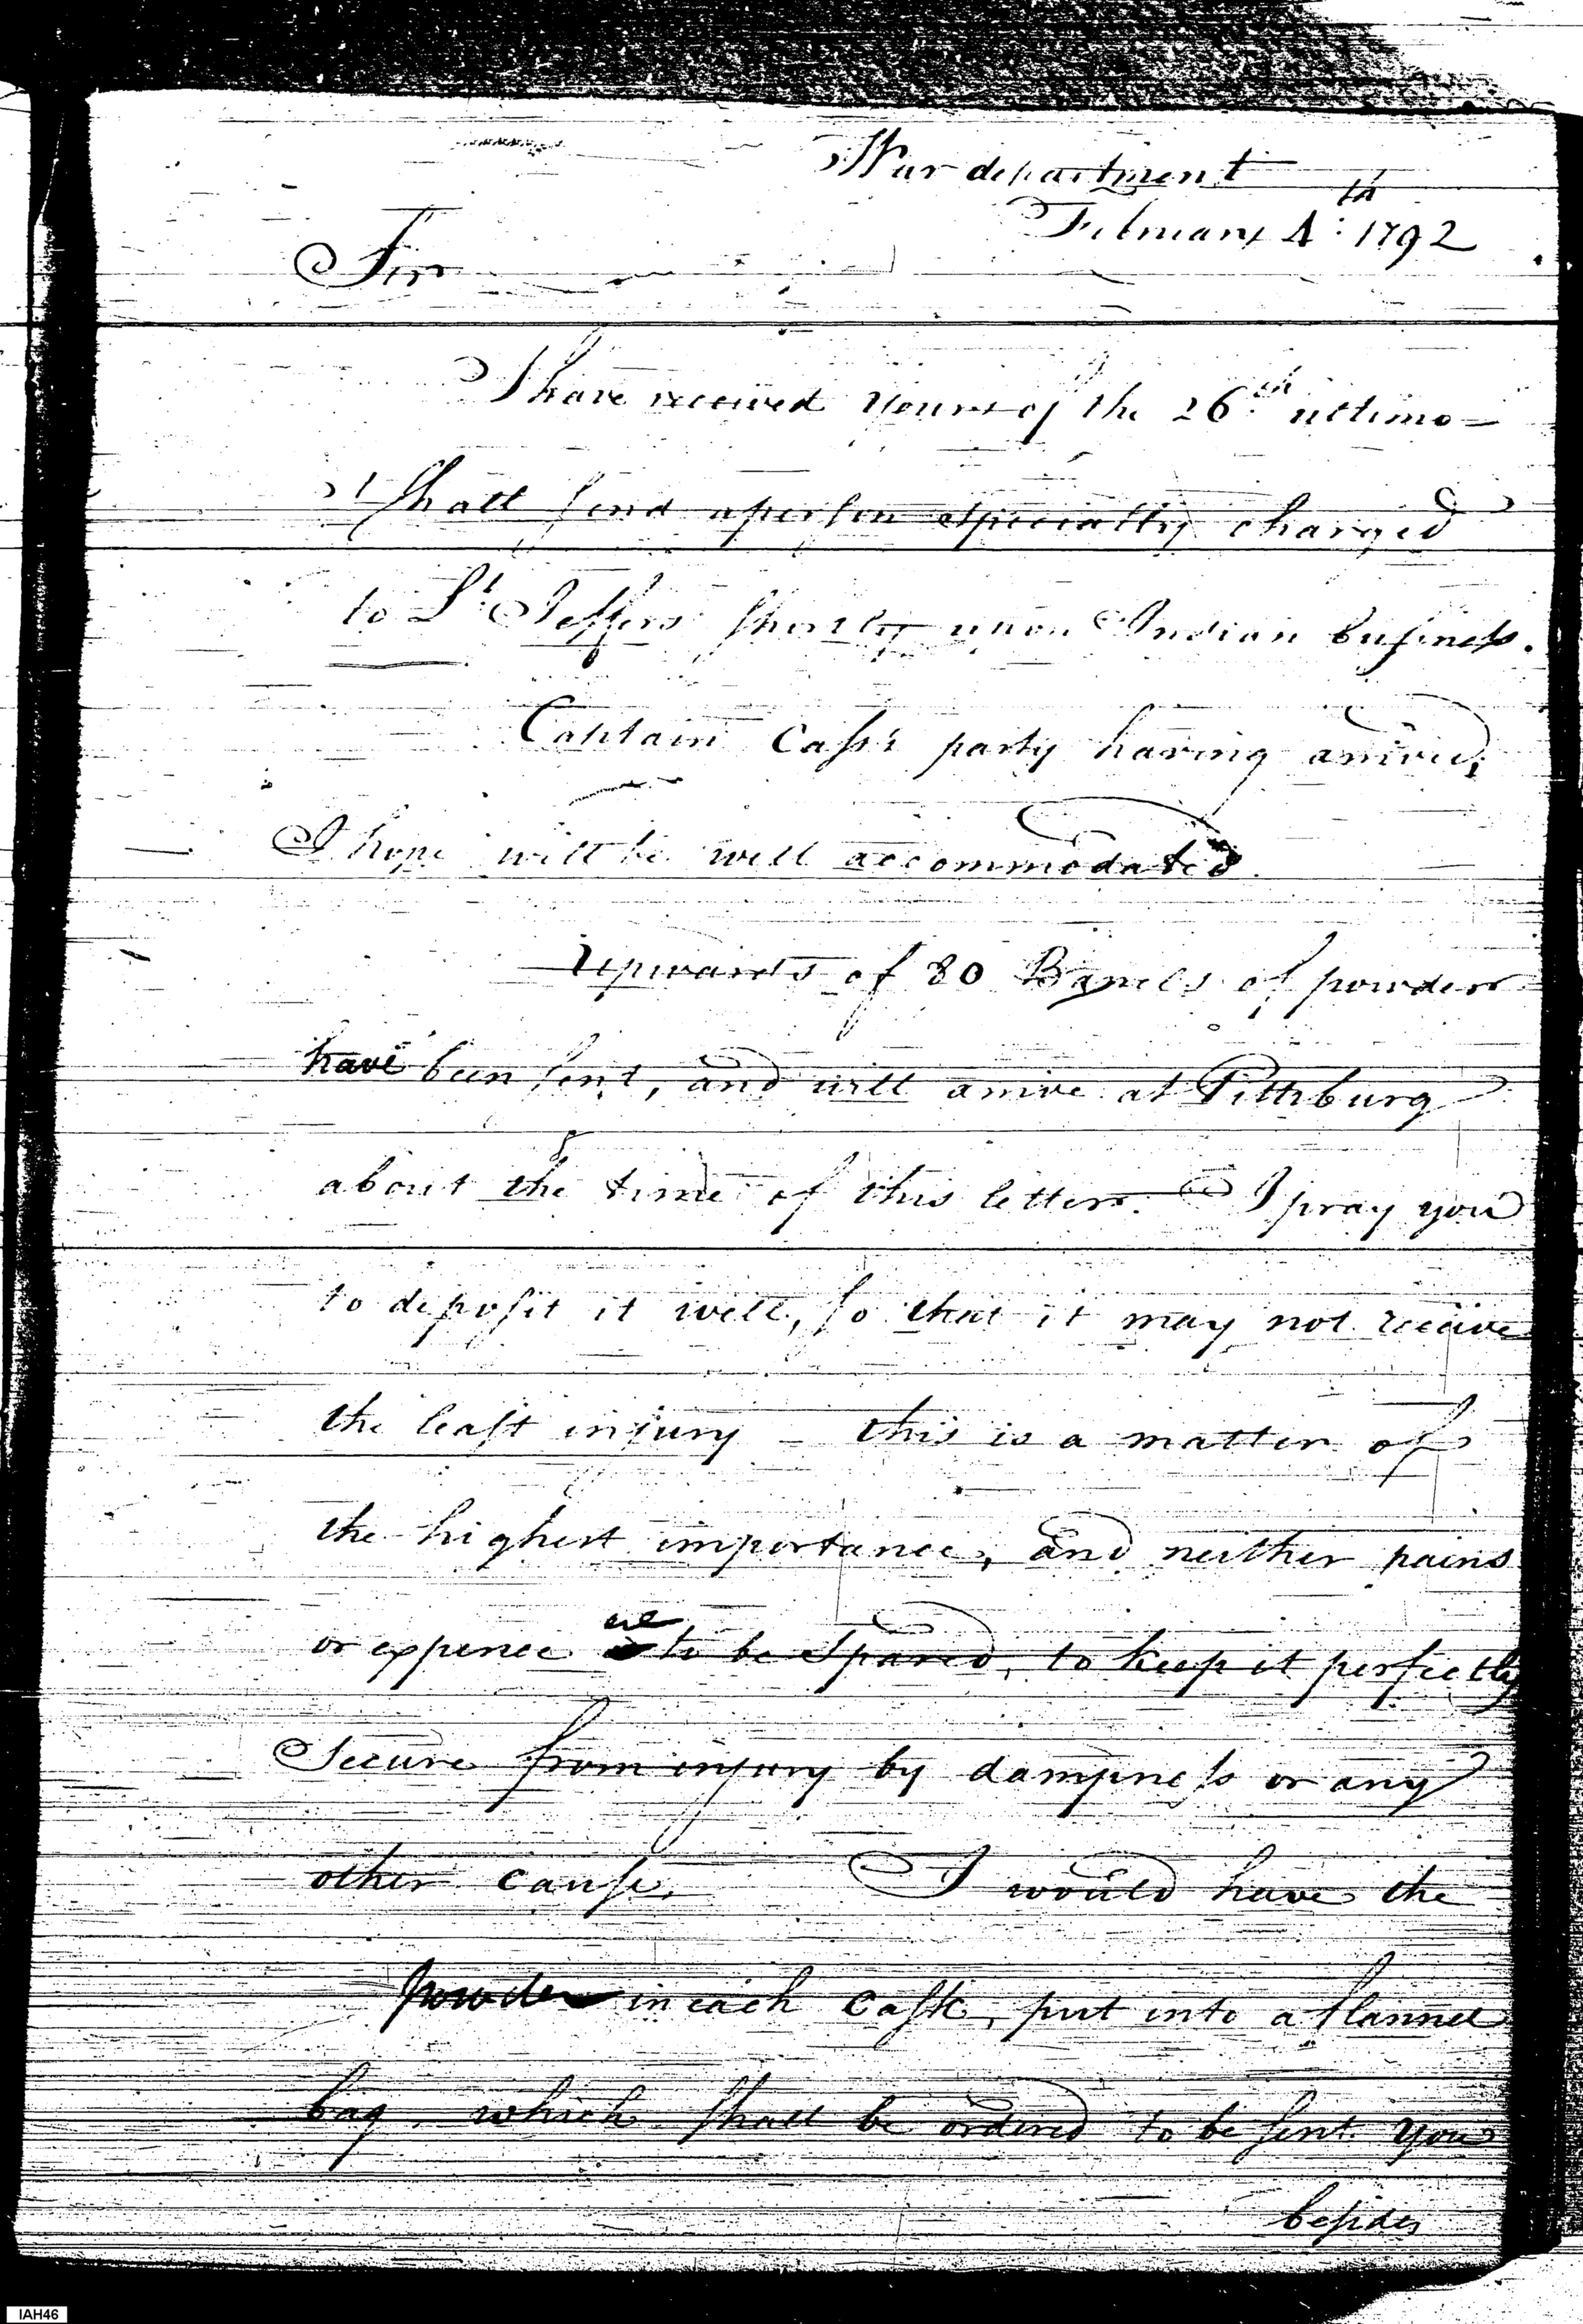 War department
February 4th: 1792
Sir
I have received yours of the 26th ultimo –
I shall send a person especially charged
to Lt. Jeffers shortly upon Indian business.
Captain Cass's party having arrived,
I hope will be well accommodated.
Upwards of 80 Barrels of powder
have been sent, and will arrive at Pittsburg
about the time of this letter. I pray you
to deposit it well, so that it may not receive
the least injury – this is a matter of
the highest importance, and neither pains
or expence are to be Spared, to keep it perfectly
Secure from injury by dampness or any
other cause. I would have the
powder in each cask, put into a flannel
bag, which shall be ordered to be sent you
besides
IAH46